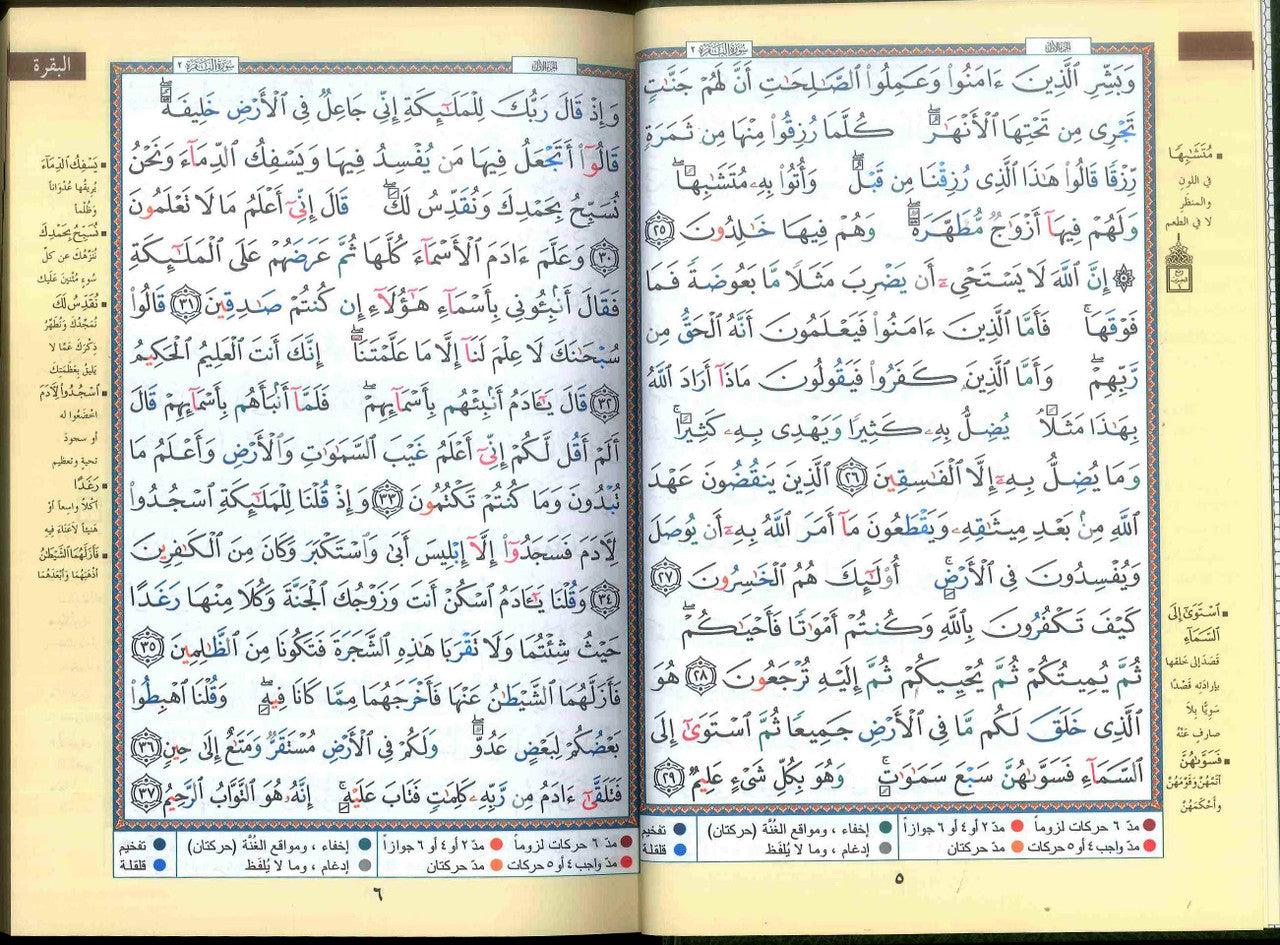 سورة البقرة ٢
الجزء الأول
وَبَشِّرِ ٱلَّذِينَ ءَامَنُوا۟ وَعَمِلُوا۟ ٱلصَّـٰلِحَـٰتِ أَنَّ لَهُمْ جَنَّـٰتٍ
تَجْرِى مِن تَحْتِهَا ٱلْأَنْهَـٰرُ ۖ كُلَّمَا رُزِقُوا۟ مِنْهَا مِن ثَمَرَةٍ
رِّزْقًا قَالُوا۟ هَـٰذَا ٱلَّذِى رُزِقْنَا مِن قَبْلُ ۖ وَأُتُوا۟ بِهِۦ مُتَشَـٰبِهًا ۖ
وَلَهُمْ فِيهَآ أَزْوَٰجٌ مُّطَهَّرَةٌ ۖ وَهُمْ فِيهَا خَـٰلِدُونَ ٢٥
۞ إِنَّ ٱللَّهَ لَا يَسْتَحْىِۦٓ أَن يَضْرِبَ مَثَلًا مَّا بَعُوضَةً فَمَا
فَوْقَهَا ۚ فَأَمَّا ٱلَّذِينَ ءَامَنُوا۟ فَيَعْلَمُونَ أَنَّهُ ٱلْحَقُّ مِن
رَّبِّهِمْ ۖ وَأَمَّا ٱلَّذِينَ كَفَرُوا۟ فَيَقُولُونَ مَاذَآ أَرَادَ ٱللَّهُ
بِهَـٰذَا مَثَلًا ۘ يُضِلُّ بِهِۦ كَثِيرًا وَيَهْدِى بِهِۦ كَثِيرًا ۚ
وَمَا يُضِلُّ بِهِۦٓ إِلَّا ٱلْفَـٰسِقِينَ ٢٦ ٱلَّذِينَ يَنقُضُونَ عَهْدَ
ٱللَّهِ مِنۢ بَعْدِ مِيثَـٰقِهِۦ وَيَقْطَعُونَ مَآ أَمَرَ ٱللَّهُ بِهِۦٓ أَن يُوصَلَ
وَيُفْسِدُونَ فِى ٱلْأَرْضِ ۚ أُو۟لَـٰٓئِكَ هُمُ ٱلْخَـٰسِرُونَ ٢٧
كَيْفَ تَكْفُرُونَ بِٱللَّهِ وَكُنتُمْ أَمْوَٰتًا فَأَحْيَـٰكُمْ ۖ
ثُمَّ يُمِيتُكُمْ ثُمَّ يُحْيِيكُمْ ثُمَّ إِلَيْهِ تُرْجَعُونَ ٢٨ هُوَ
ٱلَّذِى خَلَقَ لَكُم مَّا فِى ٱلْأَرْضِ جَمِيعًا ثُمَّ ٱسْتَوَىٰٓ إِلَى
ٱلسَّمَآءِ فَسَوَّىٰهُنَّ سَبْعَ سَمَـٰوَٰتٍ ۚ وَهُوَ بِكُلِّ شَىْءٍ عَلِيمٌ ٢٩
مُتَشَـٰبِهًا
في اللونِ
والمنظرِ
لا في الطعم
ٱسْتَوَىٰٓ إِلَى
ٱلسَّمَآءِ
قَصَدَ إلى خلقها
بإرادتِه قَصْدًا
سَوِيًّا بِلاَ
صارفٍ عَنْهُ
فَسَوَّىٰهُنَّ
أَتَمَّهُنَّ وَقَوَّمَهُنَّ
وأَحْكَمَهُنَّ
مدّ ٦ حركات لزوماً
مدّ ٢ أو ٤ أو ٦ جوازاً
إخفاء ، ومواقع الغُنَّة (حركتان)
تفخيم
مدّ واجب ٤ أو ٥ حركات
مدّ حركتان
إدغام ، وما لا يُلفَظ
قلقلة
٥
البقرة
سورة البقرة ٢
الجزء الأول
وَإِذْ قَالَ رَبُّكَ لِلْمَلَـٰٓئِكَةِ إِنِّى جَاعِلٌ فِى ٱلْأَرْضِ خَلِيفَةً ۖ
قَالُوٓا۟ أَتَجْعَلُ فِيهَا مَن يُفْسِدُ فِيهَا وَيَسْفِكُ ٱلدِّمَآءَ وَنَحْنُ
نُسَبِّحُ بِحَمْدِكَ وَنُقَدِّسُ لَكَ ۖ قَالَ إِنِّىٓ أَعْلَمُ مَا لَا تَعْلَمُونَ
٣٠ وَعَلَّمَ ءَادَمَ ٱلْأَسْمَآءَ كُلَّهَا ثُمَّ عَرَضَهُمْ عَلَى ٱلْمَلَـٰٓئِكَةِ
فَقَالَ أَنۢبِـُٔونِى بِأَسْمَآءِ هَـٰٓؤُلَآءِ إِن كُنتُمْ صَـٰدِقِينَ ٣١ قَالُوا۟
سُبْحَـٰنَكَ لَا عِلْمَ لَنَآ إِلَّا مَا عَلَّمْتَنَآ ۖ إِنَّكَ أَنتَ ٱلْعَلِيمُ ٱلْحَكِيمُ
٣٢ قَالَ يَـٰٓـَٔادَمُ أَنۢبِئْهُم بِأَسْمَآئِهِمْ ۖ فَلَمَّآ أَنۢبَأَهُم بِأَسْمَآئِهِمْ قَالَ
أَلَمْ أَقُل لَّكُمْ إِنِّىٓ أَعْلَمُ غَيْبَ ٱلسَّمَـٰوَٰتِ وَٱلْأَرْضِ وَأَعْلَمُ مَا
تُبْدُونَ وَمَا كُنتُمْ تَكْتُمُونَ ٣٣ وَإِذْ قُلْنَا لِلْمَلَـٰٓئِكَةِ ٱسْجُدُوا۟
لِـَٔادَمَ فَسَجَدُوٓا۟ إِلَّآ إِبْلِيسَ أَبَىٰ وَٱسْتَكْبَرَ وَكَانَ مِنَ ٱلْكَـٰفِرِينَ
٣٤ وَقُلْنَا يَـٰٓـَٔادَمُ ٱسْكُنْ أَنتَ وَزَوْجُكَ ٱلْجَنَّةَ وَكُلَا مِنْهَا رَغَدًا
حَيْثُ شِئْتُمَا وَلَا تَقْرَبَا هَـٰذِهِ ٱلشَّجَرَةَ فَتَكُونَا مِنَ ٱلظَّـٰلِمِينَ ٣٥
فَأَزَلَّهُمَا ٱلشَّيْطَـٰنُ عَنْهَا فَأَخْرَجَهُمَا مِمَّا كَانَا فِيهِ ۖ وَقُلْنَا ٱهْبِطُوا۟
بَعْضُكُمْ لِبَعْضٍ عَدُوٌّ ۖ وَلَكُمْ فِى ٱلْأَرْضِ مُسْتَقَرٌّ وَمَتَـٰعٌ إِلَىٰ حِينٍ ٣٦
فَتَلَقَّىٰٓ ءَادَمُ مِن رَّبِّهِۦ كَلِمَـٰتٍ فَتَابَ عَلَيْهِ ۚ إِنَّهُۥ هُوَ ٱلتَّوَّابُ ٱلرَّحِيمُ ٣٧
يَسْفِكُ ٱلدِّمَآءَ
يُرِيقُها عُدْوَانًا
وَظُلْماً
نُسَبِّحُ بِحَمْدِكَ
نُنَزِّهُكَ عن كلِّ
سُوءٍ مُثْنِينَ عَلَيك
نُقَدِّسُ لَكَ
نُمَجِّدُكَ وَنُطَهِّرُ
ذِكْرَكَ عَمَّا لا
يَلِيقُ بِعَظَمَتِكَ
ٱسْجُدُوا۟ لِـَٔادَمَ
اخْضَعُوا له
أو سجودَ
تحيةٍ وتعظيم
رَغَدًا
أَكْلاً واسعاً أوْ
هَنيئاً لاَعَنَاءَ فِيهِ
فَأَزَلَّهُمَا ٱلشَّيْطَـٰنُ
أَذْهَبَهُمَا وَأبْعَدَهُمَا
مدّ ٦ حركات لزوماً
مدّ ٢ أو ٤ أو ٦ جوازاً
إخفاء ، ومواقع الغُنَّة (حركتان)
تفخيم
مدّ واجب ٤ أو ٥ حركات
مدّ حركتان
إدغام ، وما لا يُلفَظ
قلقلة
٦